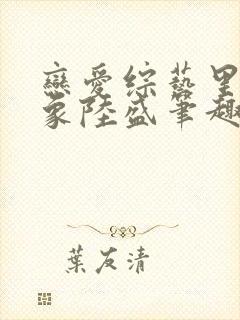 戀愛綜藝里
家陸盛筆趣
葉友清